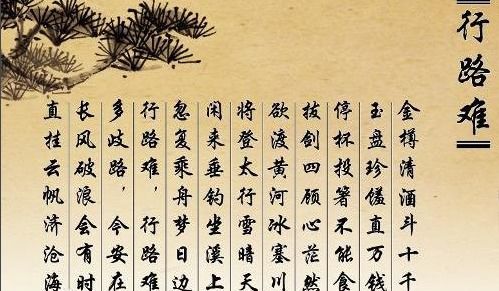 行路难
金樽清酒斗十千
玉盘珍馐直万钱
停杯投箸不能食
拔剑四顾心茫然
欲渡黄河冰塞川
将登太行雪暗天
闲来垂钓坐溪上
忽复乘舟梦日边
行路难，行路难
多歧路，今安在
长风破浪会有时
直挂云帆济沧海